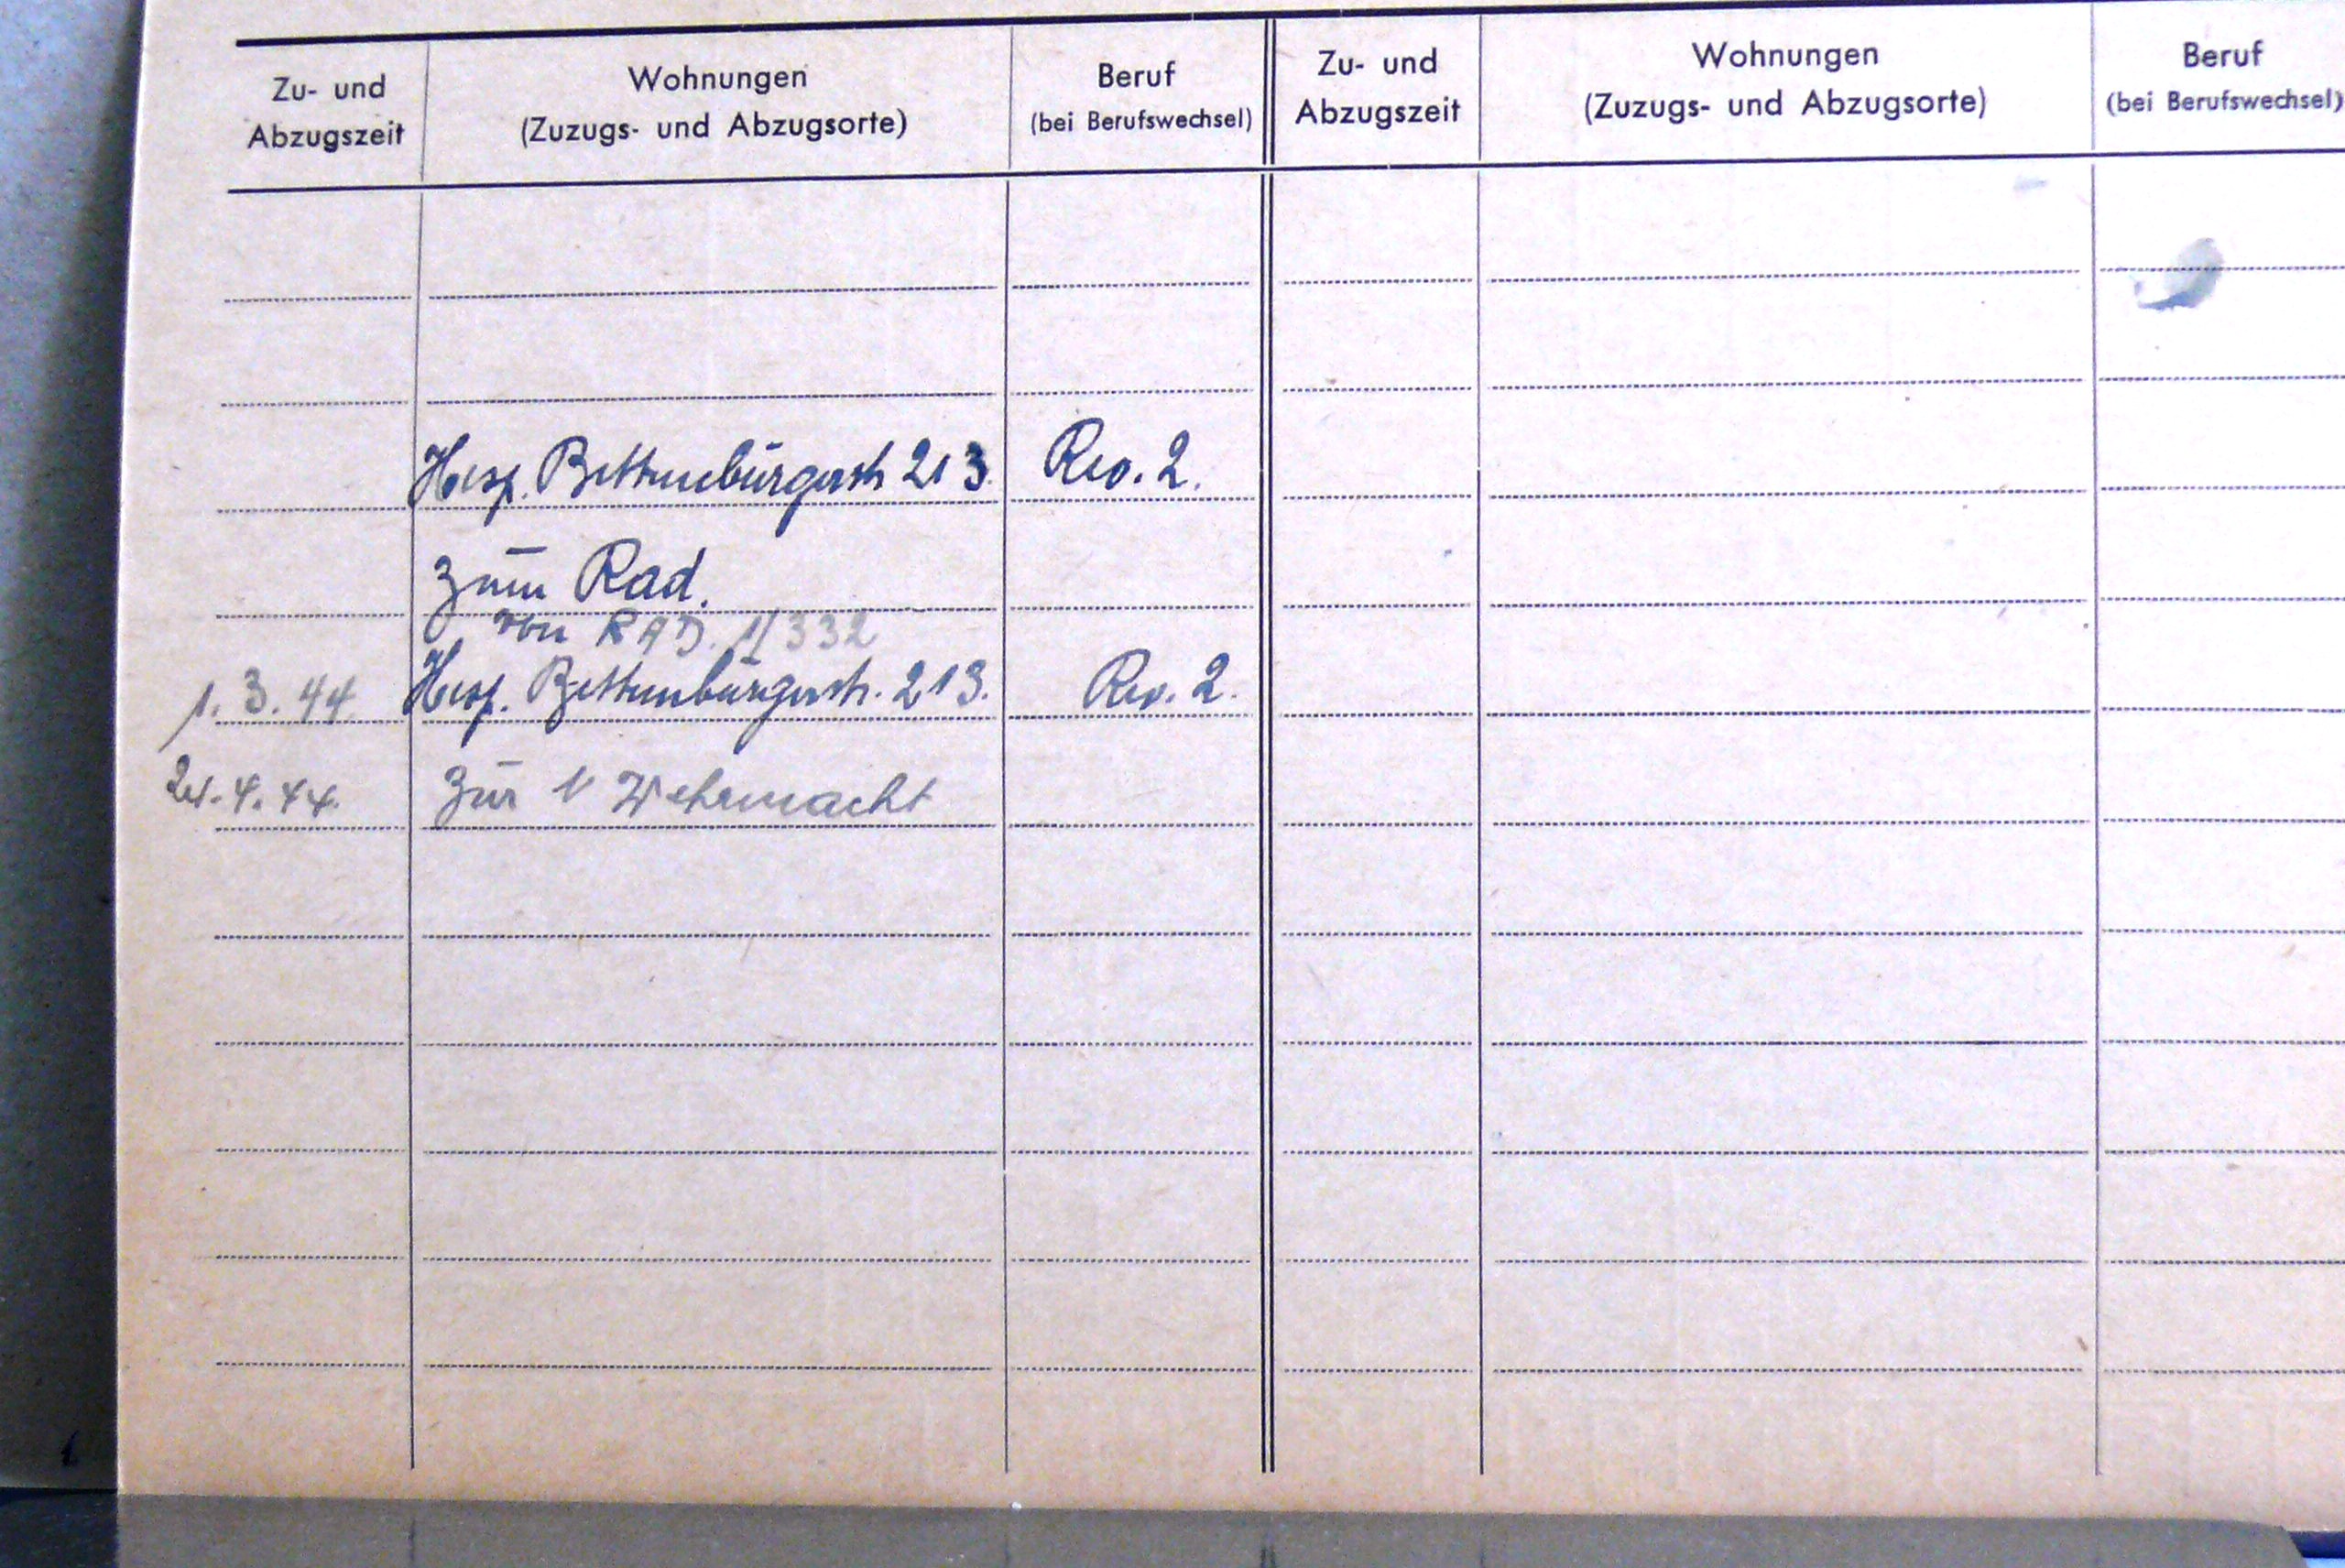 Zu- und Abzugszeit Wohnungen (Zuzugs- und Abzugsorte) Beruf (bei Berufswechsel) Zu- und Abzugszeit Wohnungen (Zuzugs- und Abzugsorte) Beruf (bei Berufswechsel)
Hesp. Bettenbürgerstr 213. Rev. 2.
zum Rad.
von RAD. 1/332
1. 3. 44 Hesp. Bettenbürgerstr. 213. Rev. 2.
4. 44. Zur Wehrmacht